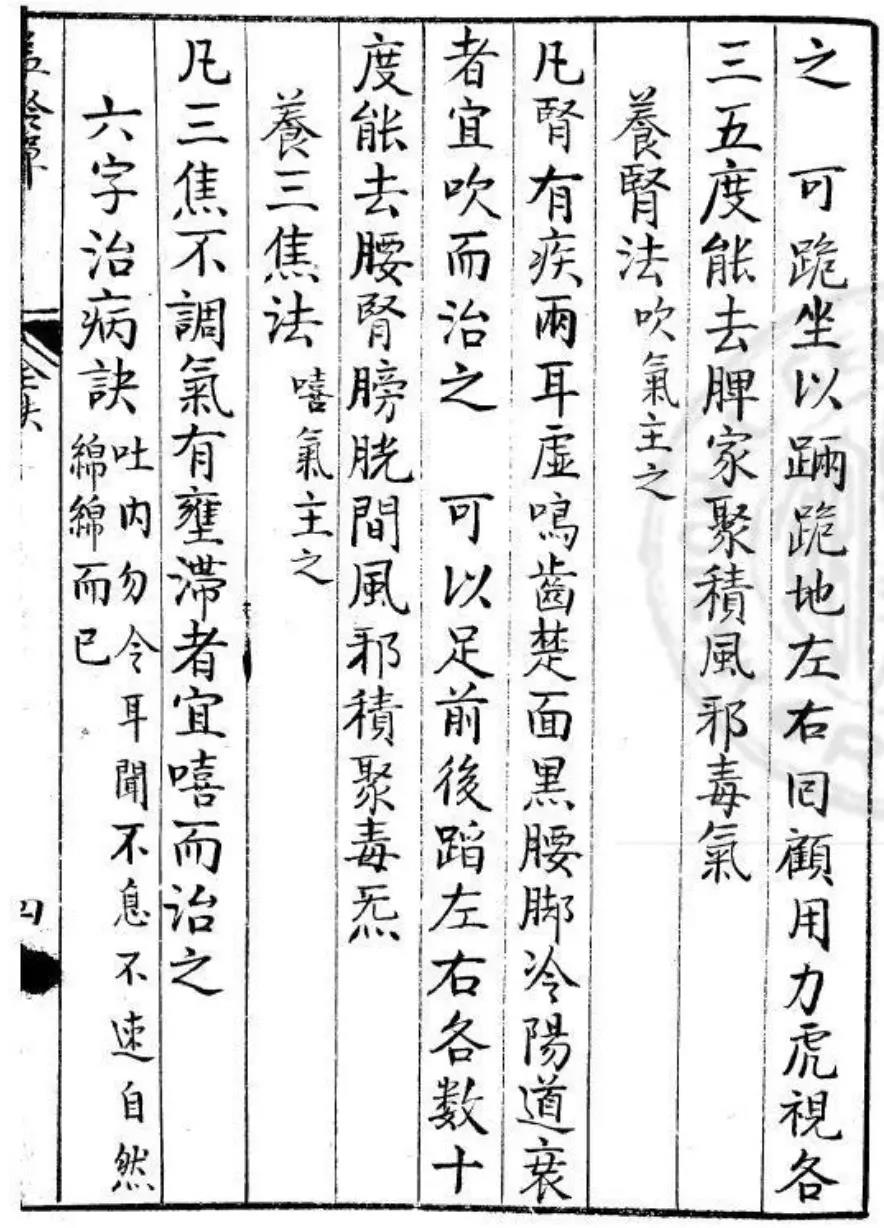 之　可跪坐以踊跪地左右回顧用力虎視各
三五度能去脾家聚積風邪毒氣
養腎法吹氣主之
凡腎有疾兩耳虛鳴齒楚面黑腰脚冷陽道衰
者宜吹而治之　可以足前後蹈左右各數十
度能去腰腎膀胱間風邪積聚毒炁
養三焦法嘻氣主之
凡三焦不調氣有壅滯者宜嘻而治之
六字治病訣吐內勿令耳聞不息不速自然
綿綿而已
四